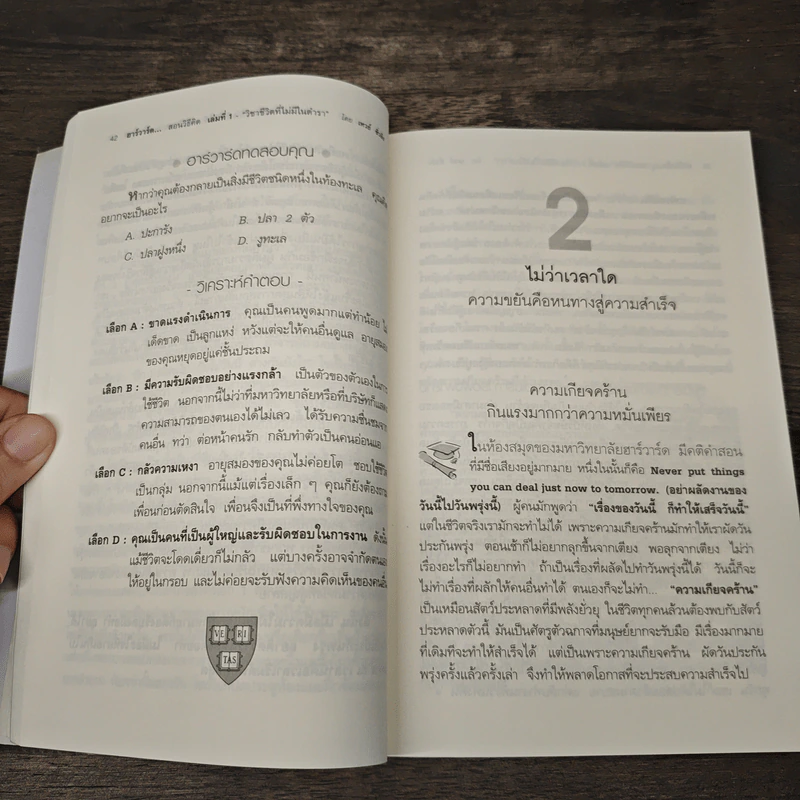 42 ฮาร์วาร์ด... สอนวิธีคิด เล่มที่ 1 - "วิชาชีวิตที่ไม่มีในตำรา" โดย
ฮาร์วาร์ดทดสอบคุณ
หากว่าคุณต้องกลายเป็นสิ่งมีชีวิตชนิดหนึ่งในท้องทะเล
อยากจะเป็นอะไร
A. ปะการัง B. ปลา 2 ตัว
C. ปลาฝูงหนึ่ง D. งูทะเล
- วิเคราะห์คำตอบ -
เลือก A : ขาดแรงดำเนินการ คุณเป็นคนพูดมากแต่ทำน้อย ไม่
เด็ดขาด เป็นลูกแหง่ หวังแต่จะให้คนอื่นดูแล อายุสมอง
ของคุณหยุดอยู่แค่ชั้นประถม
เลือก B : มีความรับผิดชอบอย่างแรงกล้า เป็นตัวของตัวเองใน
ใช้ชีวิต นอกจากนี้ไม่ว่าที่มหาวิทยาลัยหรือที่บริษัทก็แสดง
ความสามารถของตนเองได้ไม่เลว ได้รับความชื่นชมจาก
คนอื่น ทว่า ต่อหน้าคนรัก กลับทำตัวเป็นคนอ่อนแอ
เลือก C : กลัวความเหงา อายุสมองของคุณไม่ค่อยโต ชอบใช้ชีวิต
เป็นกลุ่ม นอกจากนี้แม้แต่เรื่องเล็ก ๆ คุณก็ยังต้องถาม
เพื่อนก่อนตัดสินใจ เพื่อนจึงเป็นที่พึ่งทางใจของคุณ
เลือก D : คุณเป็นคนที่เป็นผู้ใหญ่และรับผิดชอบในการงาน ดังนั้น
แม้ชีวิตจะโดดเดี่ยวก็ไม่กลัว แต่บางครั้งอาจจำกัดตนเอง
ให้อยู่ในกรอบ และไม่ค่อยจะรับฟังความคิดเห็นของคนอื่น
VE RI
TAS
2
ไม่ว่าเวลาใด
ความขยันคือหนทางสู่ความสำเร็จ
ความเกียจคร้าน
กินแรงมากกว่าความหมั่นเพียร
ในห้องสมุดของมหาวิทยาลัยฮาร์วาร์ด มีคติคำสอน
ที่มีชื่อเสียงอยู่มากมาย หนึ่งในนั้นก็คือ Never put things
you can deal just now to tomorrow. (อย่าผลัดงานของ
วันนี้ไปวันพรุ่งนี้) ผู้คนมักพูดว่า "เรื่องของวันนี้ ก็ทำให้เสร็จวันนี้"
แต่ในชีวิตจริงเรามักจะทำไม่ได้ เพราะความเกียจคร้านมักทำให้เราผัดวัน
ประกันพรุ่ง ตอนเช้าก็ไม่อยากลุกขึ้นจากเตียง พอลุกจากเตียง ไม่ว่า
เรื่องอะไรก็ไม่อยากทำ ถ้าเป็นเรื่องที่ผลัดไปทำวันพรุ่งนี้ได้ วันนี้ก็จะ
ไม่ทำเรื่องที่ผลักให้คนอื่นทำได้ ตนเองก็จะไม่ทำ... "ความเกียจคร้าน"
เป็นเหมือนสัตว์ประหลาดที่มีพลังยั่วยุ ในชีวิตทุกคนล้วนต้องพบกับสัตว์
ประหลาดตัวนี้ มันเป็นศัตรูตัวฉกาจที่มนุษย์ยากจะรับมือ มีเรื่องมากมาย
ที่เดิมทีจะทำให้สำเร็จได้ แต่เป็นเพราะความเกียจคร้าน ผัดวันประกัน
พรุ่งครั้งแล้วครั้งเล่า จึงทำให้พลาดโอกาสที่จะประสบความสำเร็จไป